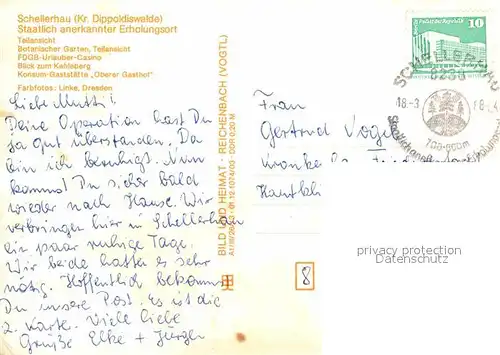 Schellerhau (Kr. Dippoldiswalde)
Staatlich anerkannter Erholungsort
Teilansicht
Botanischer Garten, Teilansicht
FDGB-Urlauber-Casino
Blick zum Kahleberg
Konsum-Gaststätte „Oberer Gasthof"
Farbfotos: Linke, Dresden
Liebe Mutti!
Deine Operation hast Du
ja gut überstanden. Da
bin ich beruhigt. Nun
kommst Du sicher bald
wieder nach Hause. Wir
verbringen hier in Schellerhau
ein paar ruhige Tage.
Wir beide hatten es sehr
nötig. Hoffentlich bekommst
Du unsere Post. Es ist die
2. Karte. Viele liebe
Grüße Elke + Jürgen
BILD UND HEIMAT · REICHENBACH (VOGTL)
DDR 0,20 M
10
SCHELLERHAU
18.-3
700-800m
Frau
Gertrud Vogel
privacy protection
samler.com
8